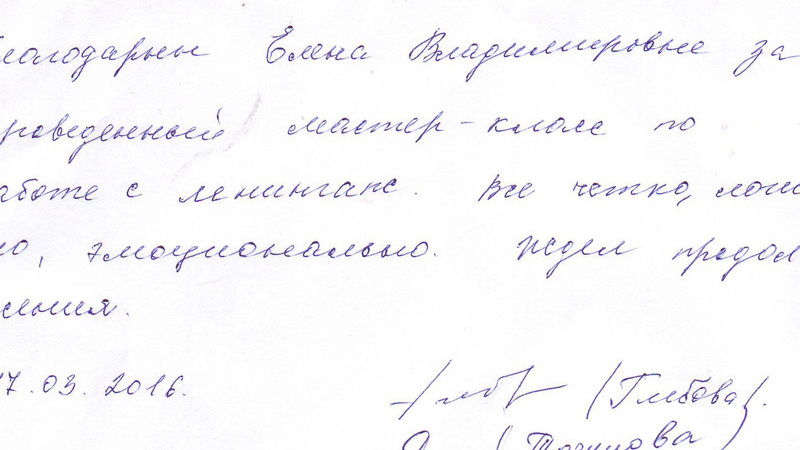 благодарны Елена Владимировне за
роведенный мастер-класс по
аботе с
Все четко, логи
но, эмоционально. Ждем продол
жения.
17.03.2016. (Глебова).